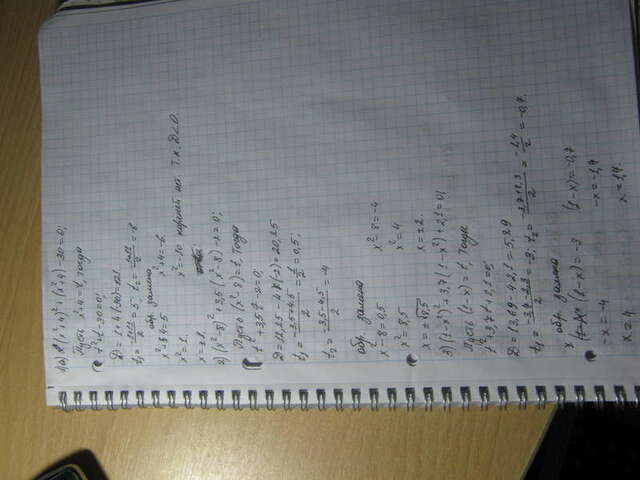 1) (x²+4)²+(x²+4)-30=0;
Пусть x²+4=t, тогда
t²+t-30=0;
D=1+4·(30)=121.
t₁=(-1+11)/2=5; t₂=(-1-11)/2=-6
обр. замена
x²+4=5 x²+4=-6
x²=1. x²=-10 корней нет. Т.к. D<0.
x=±1.
2) (x²-8)²+3,5(x²-8)-2=0;
Пусть (x²-8)=t, тогда
t²+3,5t-2=0;
D=12,25-4·1·(-2)=20,25
t₁=(-3,5+4,5)/2=0,5;
t₂=(-3,5-4,5)/2=-4
обр. замена
x²-8=0,5 x²-8=-4
x²=8,5 x²=4
x=±√8,5 x=±2.
3) (1-x)²+3,7(1-x)+2,1=0;
Пусть (1-x)=t, тогда
t²+3,7t+2,1=0;
D=13,69-4·2,1=5,29
t₂=(-3,7+2,3)/2=-1,4/2=-0,7.
обр. замена
(1-x)=-3 (1-x)=-0,7
-x=-4 -x=-1,7
x=4. x=1,7.